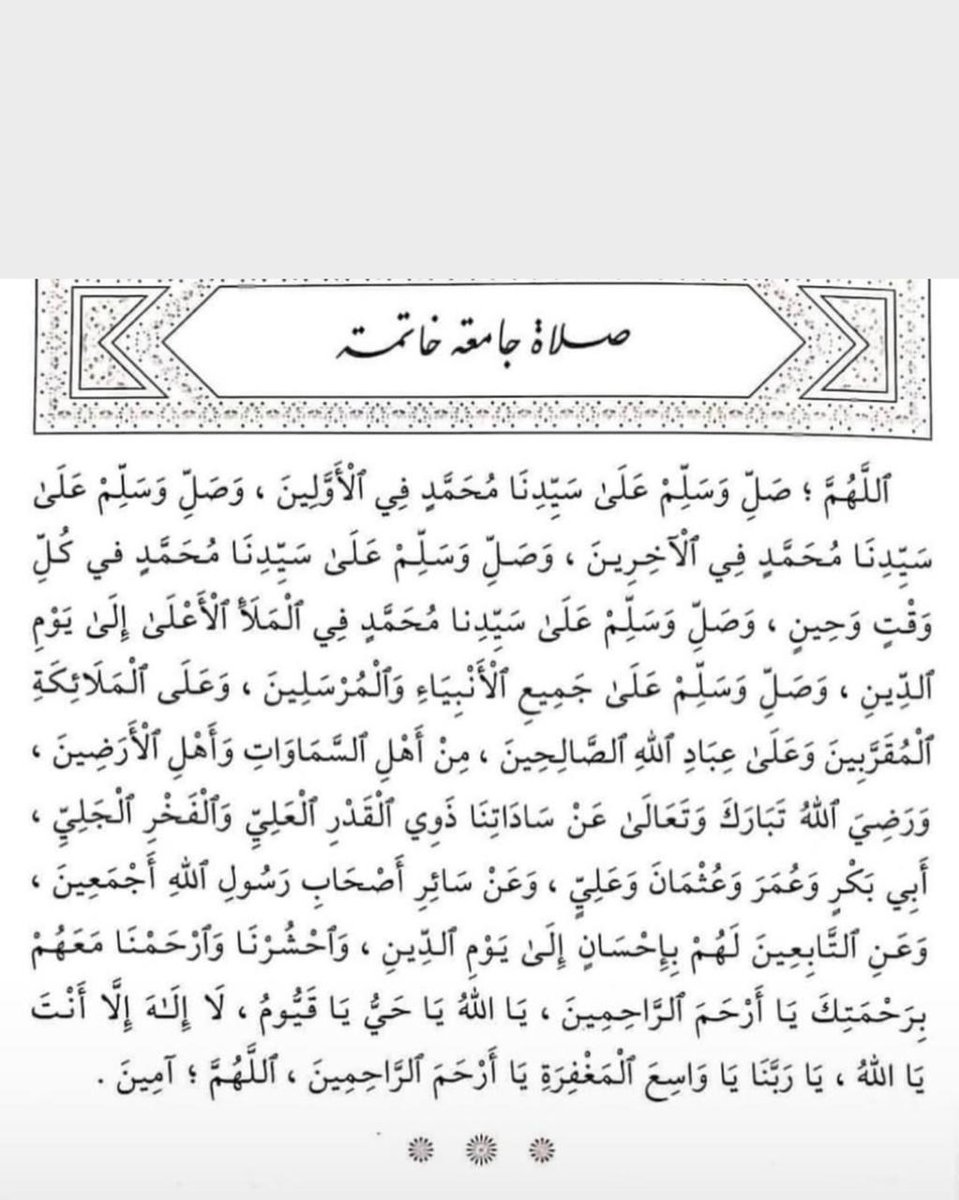 صلاة جامعة خاتمة
ٱللَّهُمَّ ؛ صَلِّ وَسَلِّمْ عَلَىٰ سَيِّدِنَا مُحَمَّدٍ فِي ٱلْأَوَّلِينَ ، وَصَلِّ وَسَلِّمْ عَلَىٰ
سَيِّدِنَا مُحَمَّدٍ فِي ٱلْآخِرِينَ ، وَصَلِّ وَسَلِّمْ عَلَىٰ سَيِّدِنَا مُحَمَّدٍ في كُلِّ
وَقْتٍ وَحِينٍ ، وَصَلِّ وَسَلِّمْ عَلَىٰ سَيِّدِنا مُحَمَّدٍ فِي ٱلْمَلَأِ ٱلْأَعْلَىٰ إِلَىٰ يَوْمِ
ٱلدِّينِ ، وَصَلِّ وَسَلِّمْ عَلَىٰ جَمِيعِ ٱلْأَنْبِيَاءِ وَٱلْمُرْسَلِينَ ، وَعَلَى ٱلْمَلَائِكَةِ
ٱلْمُقَرَّبِينَ وَعَلَىٰ عِبَادِ ٱللهِ ٱلصَّالِحِينَ ، مِنْ أَهْلِ ٱلسَّمَاوَاتِ وَأَهْلِ ٱلْأَرَضِينَ ،
وَرَضِيَ ٱللهُ تَبَارَكَ وَتَعَالَىٰ عَنْ سَادَاتِنَا ذَوِي ٱلْقَدْرِ ٱلْعَلِيِّ وَٱلْفَخْرِ ٱلْجَلِيِّ ،
أَبِي بَكْرٍ وَعُمَرَ وَعُثْمَانَ وَعَلِيٍّ ، وَعَنْ سَائِرِ أَصْحَابِ رَسُولِ ٱللهِ أَجْمَعِينَ ،
وَعَنِ ٱلتَّابِعِينَ لَهُمْ بِإِحْسَانٍ إِلَىٰ يَوْمِ ٱلدِّينِ ، وَٱحْشُرْنَا وَٱرْحَمْنَا مَعَهُمْ
بِرَحْمَتِكَ يَا أَرْحَمَ ٱلرَّاحِمِينَ ، يَا ٱللهُ يَا حَيُّ يَا قَيُّومُ ، لَا إِلَـٰهَ إِلَّا أَنْتَ
يَا ٱللهُ ، يَا رَبَّنَا يَا وَاسِعَ ٱلْمَغْفِرَةِ يَا أَرْحَمَ ٱلرَّاحِمِينَ ، ٱللَّهُمَّ ؛ آمِينَ .